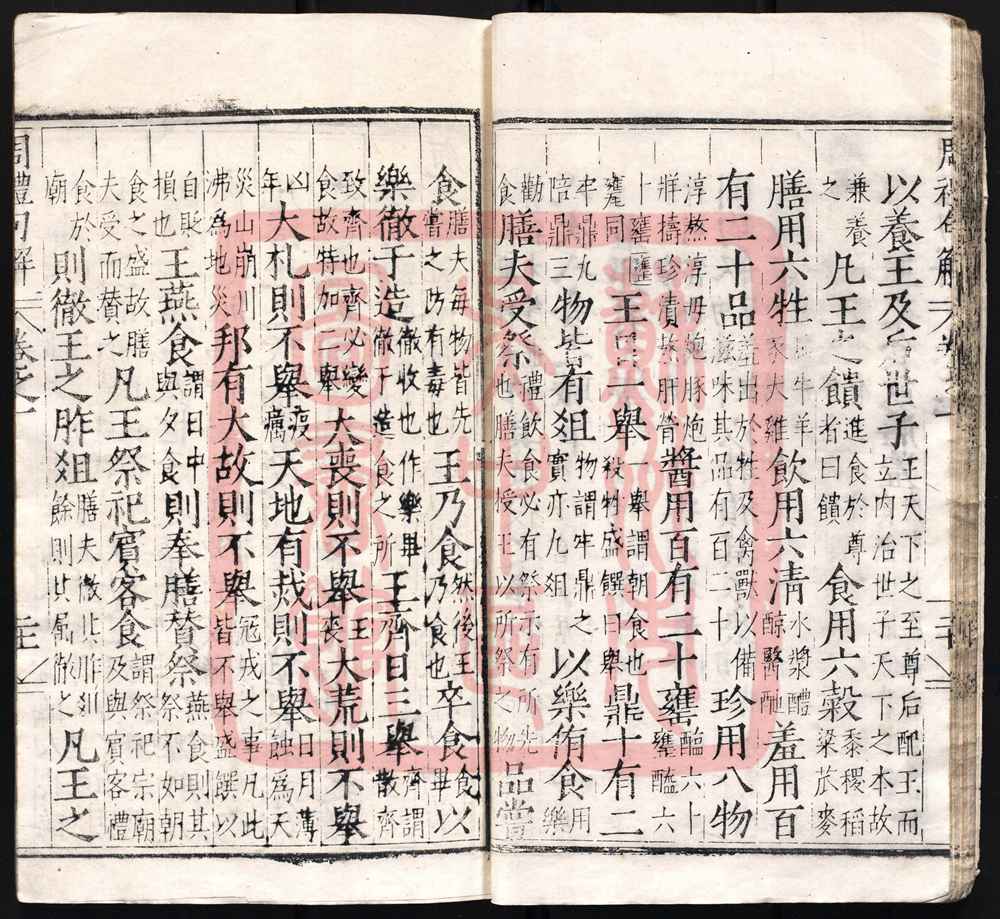 周禮句解
以養王及后世子王天下之至尊后配王而立內治世子天下之本故
兼養之凡王之饋進食於尊者曰饋食用六穀黍稷稻粱苽麥
膳用六牲馬牛羊豕犬雞飲用六清水漿醴醇醫酏羞用百
有二十品羞出於牲及禽獸以備滋味其品有百二十珍用八物
淳熬淳母炮豚炮牂擣珍漬熬肝膋醬用百有二十罋醢六十罋醯六
十罋同王日一舉一舉謂朝食也殺牲盛饌曰舉鼎十有二
牢鼎九陪鼎三物皆有俎物謂牢鼎之實亦九俎以樂侑食用樂
勸食膳夫受祭禮飲食必有祭示有所先也膳夫授王以所祭之物品嘗
食膳夫每物皆先嘗之防有毒也王乃食然後王乃食也卒食食畢以
樂徹于造徹收也作樂畢徹于造食之所王齊日三舉齊謂散齊
致齊也齊必變食故特加一舉大喪則不舉王喪大荒則不舉
凶年大札則不舉疫癘天地有烖則不舉日月薄蝕爲天
災山崩川沸爲地災邦有大故則不舉冦戎之事凡此皆不舉盛饌以
自貶損也王燕食謂日中與夕食則奉膳贊祭燕食則其祭不如朝
食之盛故膳夫受而贊之凡王祭祀賓客食謂祭祀宗廟及與賓客禮
食於廟則徹王之胙俎膳夫徹此胙俎餘則其屬徹之凡王之
周禮句解 卷之一